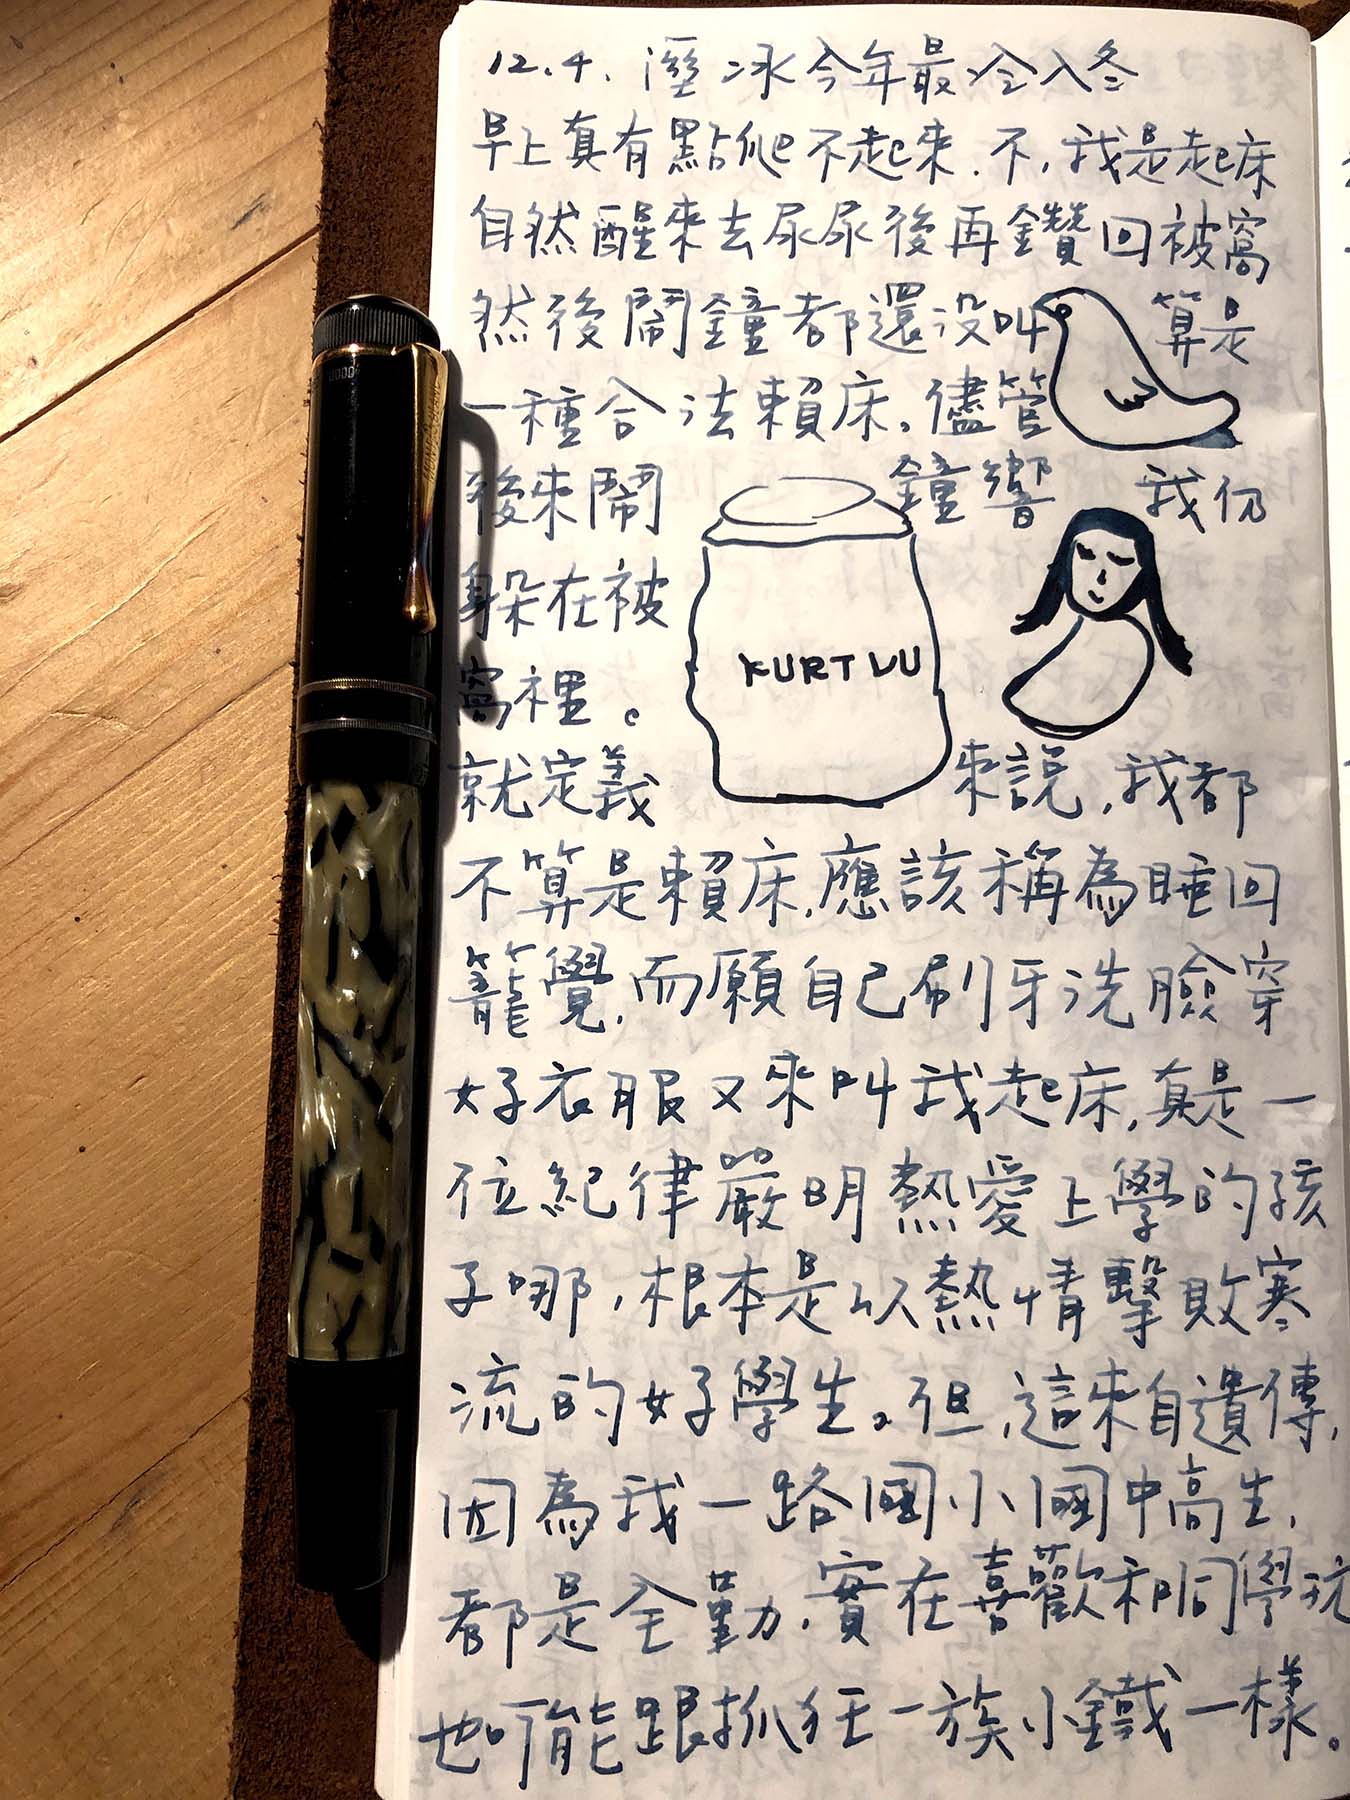 12.4. 溼冰今年最冷入冬
早上真有點爬不起來.不,我是起床
自然醒來去尿尿後再鑽回被窩
然後鬧鐘都還沒叫 算是
一種合法賴床。儘管
後來鬧 鐘響 我仍
躲在被
窩裡。
KURT LU
就定義 來說,我都
不算是賴床,應該稱為睡回
籠覺,而願自己刷牙洗臉穿
好衣服又來叫我起床,真是一
位紀律嚴明熱愛上學的孩
子哪,根本是以熱情擊敗寒
流的好學生。但,這來自遺傳,
因為我一路國小國中高生,
都是全勤,實在喜歡和同學玩
也可能跟抓狂一族小鐵一樣。